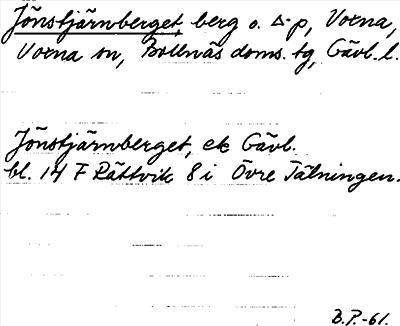 Jönstjärnberget, berg o. Δ-p, Voxna,
Voxna sn, Bollnäs doms. tg, Gävl. l.
Jönstjärnberget, ek Gävl.
bl. 14 F Rättvik 8 i Övre Tälningen.
B.P.-61.